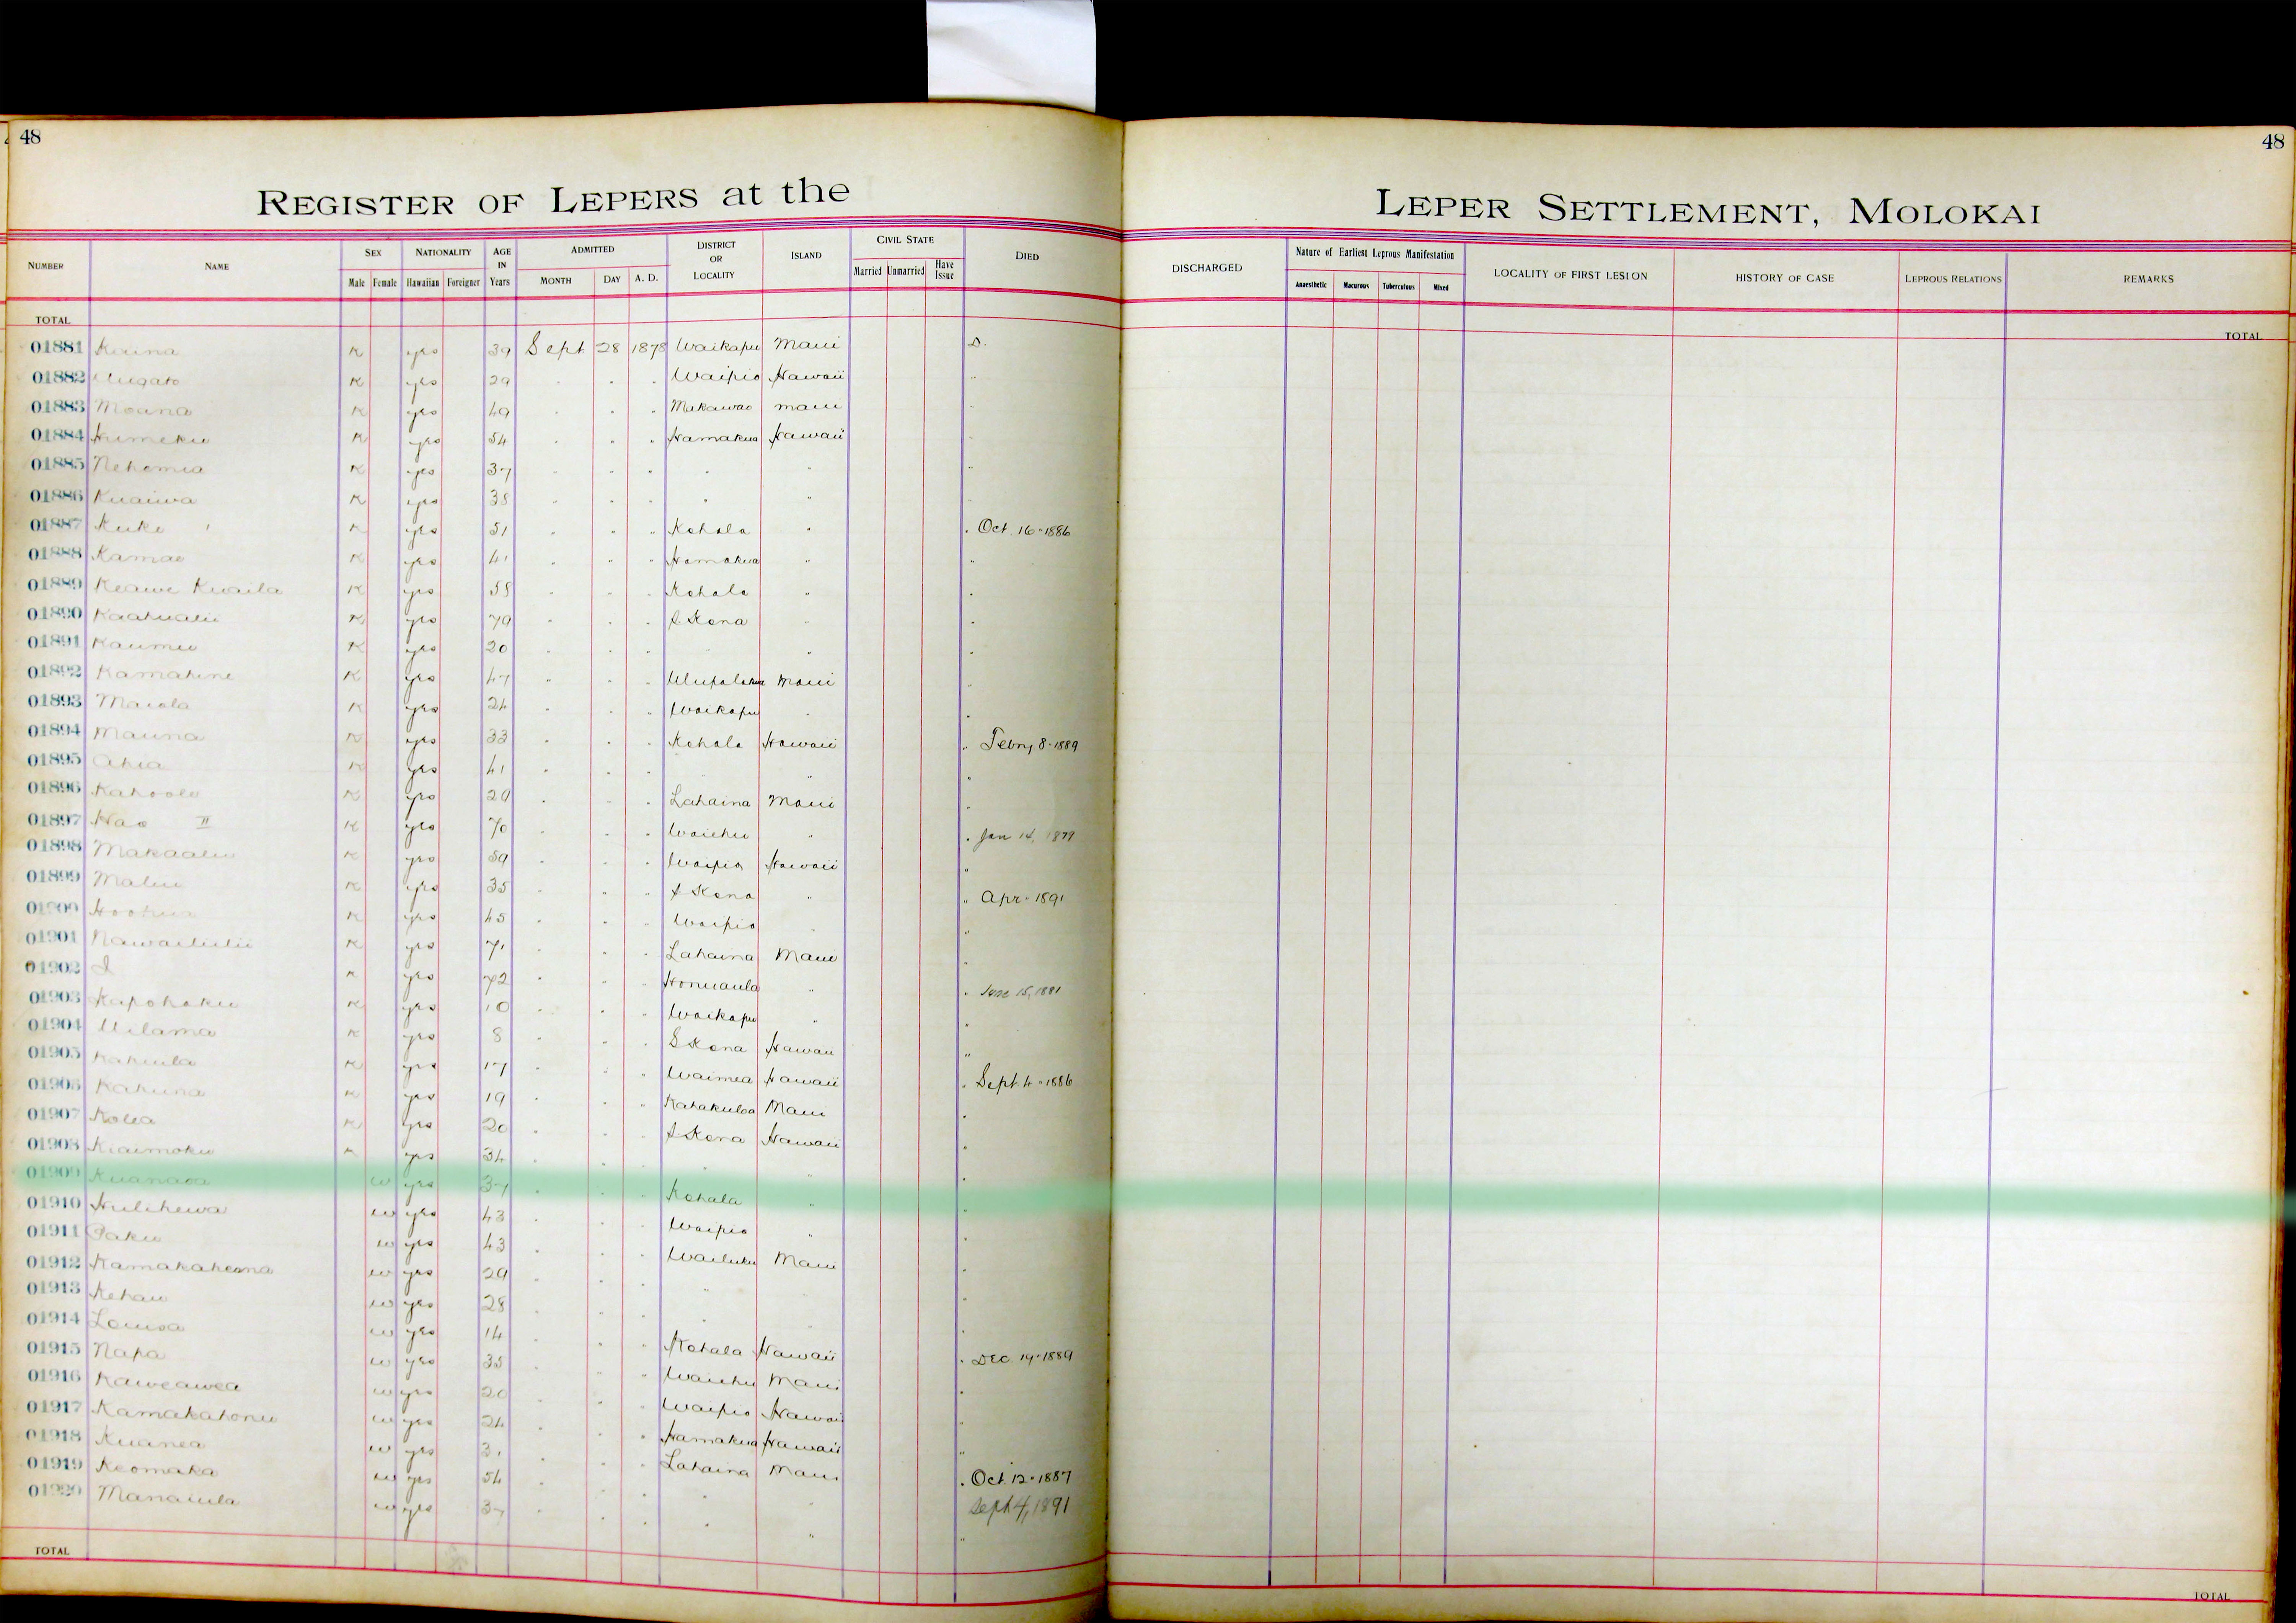 48
48
REGISTER OF LEPERS at the
LEPER SETTLEMENT, MOLOKAI
NUMBER NAME SEX NATIONALITY AGE IN Years ADMITTED DISTRICT OR LOCALITY ISLAND CIVIL STATE DIED DISCHARGED Nature of Earliest Leprous Manifestation LOCALITY OF FIRST LESION HISTORY OF CASE LEPROUS RELATIONS REMARKS
Male Female Hawaiian Foreigner MONTH DAY A. D. Married Unmarried Have Issue Anaesthetic Macurous Tuberculous Mixed
TOTAL TOTAL
01881 K yes 39 Sept 28 1878 Waikapu Maui D.
01882 K yes 29 " " " Waipio Hawaii "
01883 Moana K yes 49 " " " Makawao Maui "
01884 Humeku K yes 54 " " " Hamakua Hawaii "
01885 Nehemia K yes 37 " " " " " "
01886 Kuaiwa K yes 38 " " " " " "
01887 Kuke K yes 51 " " " Kohala " " Oct. 16-1886
01888 Kamae K yes 41 " " " Hamakua " "
01889 Keawe Kuaila K yes 58 " " " Kohala " "
01890 Kaahualii K yes 79 " " " Kona " "
01891 Kaumu K yes 20 " " " " " "
01892 Kamahine K yes 47 " " " Ulupalakua Maui "
01893 Maiola K yes 24 " " " Waikapu " "
01894 Mauna K yes 33 " " " Kohala Hawaii " Febry 8-1889
01895 Ahia K yes 41 " " " " " "
01896 Kahoole K yes 29 " " " Lahaina Maui "
01897 Hao II K yes 70 " " " Waiehu " " Jan 14, 1879
01898 Makaalu K yes 59 " " " Waipio Hawaii "
01899 K yes 35 " " " Kona " " Apr-1891
01900 K yes 45 " " " Waipio " "
01901 Nawailiilii K yes 71 " " " Lahaina Maui "
01902 I K yes 72 " " " Honuaula " " June 15, 1881
01903 Kapohaku K yes 10 " " " Waikapu " "
01904 Uilama K yes 8 " " " S Kona Hawaii "
01905 K yes 17 " " " Waimea Hawaii " Sept. 4-1886
01906 Kahuna K yes 19 " " " Kahakuloa Maui "
01907 Kolea K yes 20 " " " Kona Hawaii "
01908 Kiaimoku K yes 34 " " " " " "
01909 w yes 37 " " " Kohala " "
01910 Hulihewa w yes 43 " " " Waipio " "
01911 Paku w yes 43 " " " Wailuku Maui "
01912 w yes 29 " " " " "
01913 Kehau w yes 28 " " " " "
01914 Louisa w yes 14 " " " Kohala Hawaii " Dec. 19-1889
01915 Napa w yes 35 " " " Waiehu Maui "
01916 Kaweawea w yes 20 " " " Waipio Hawaii "
01917 Kamakahonu w yes 24 " " " Hamakua Hawaii "
01918 Kuanea w yes 31 " " " Lahaina Maui " Oct. 12-1887
01919 Keomaka w yes 54 " " " " " Sept 4, 1891
01920 Manaiula w yes 37 " " " " " "
TOTAL TOTAL